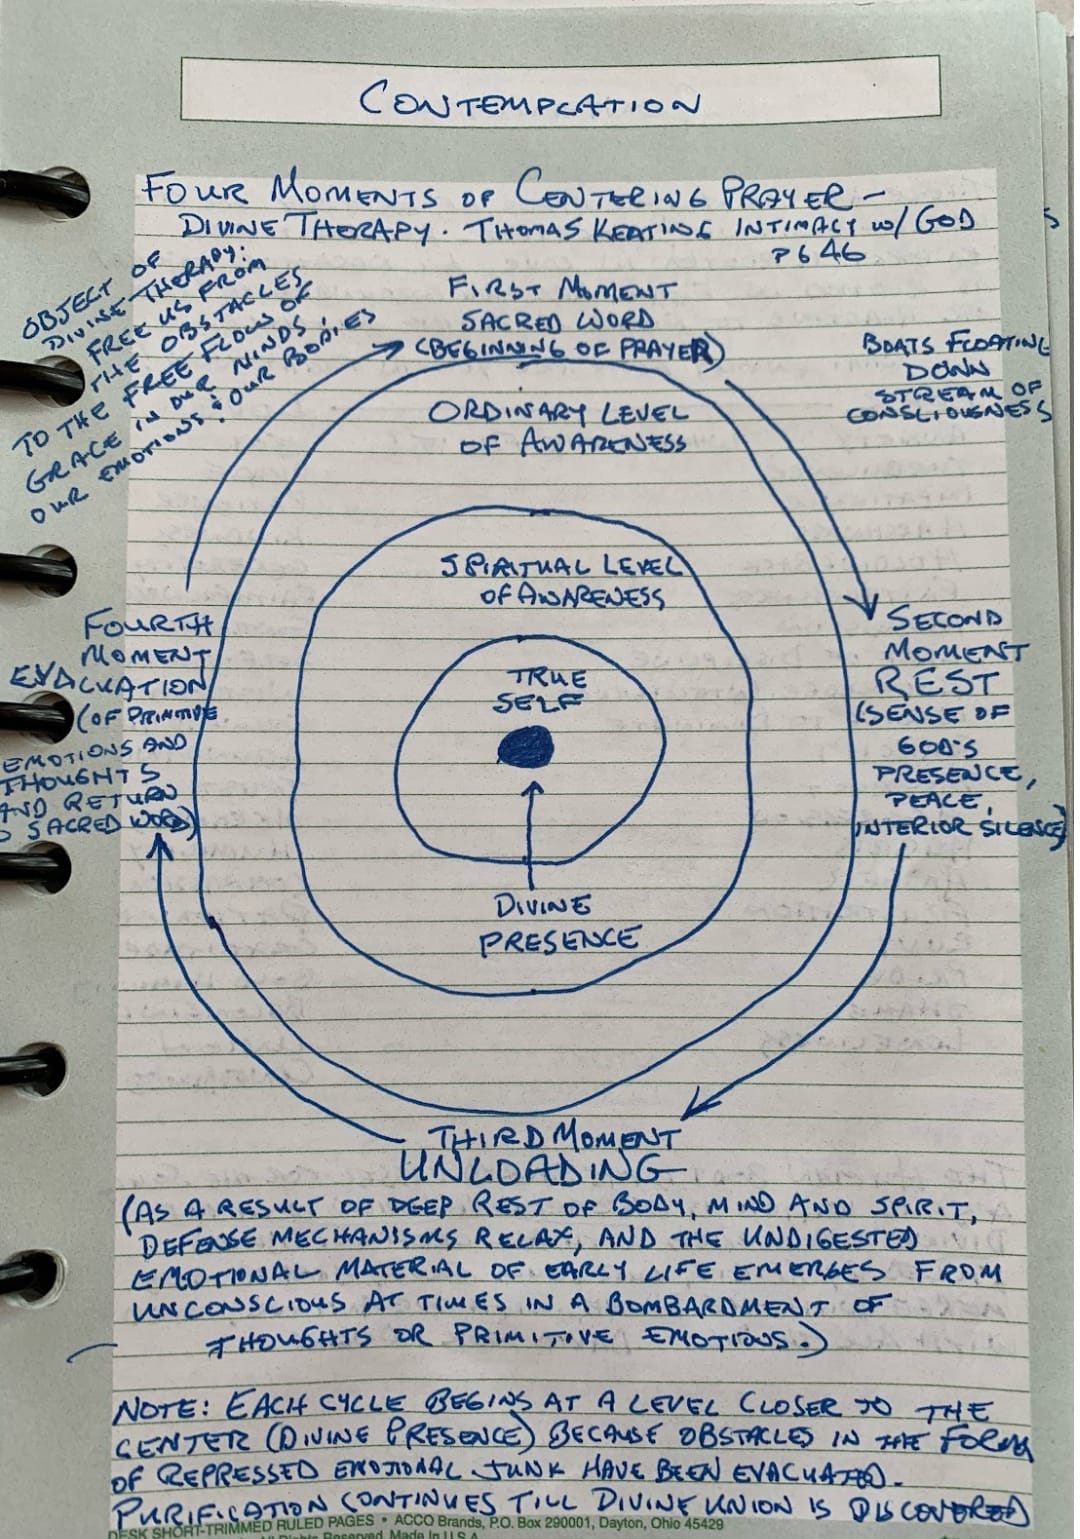 CONTEMPLATION
FOUR MOMENTS OF CENTERING PRAYER -
DIVINE THERAPY. THOMAS KEATING INTIMACY W/ GOD
PG 46
OBJECT OF
DIVINE THERAPY:
FREE US FROM
THE OBSTACLES
TO THE FREE FLOW OF
GRACE IN OUR MINDS,
OUR EMOTIONS & OUR BODIES
FIRST MOMENT
SACRED WORD
(BEGINNING OF PRAYER)
BOATS FLOATING
DOWN
STREAM OF
CONSCIOUSNESS
ORDINARY LEVEL
OF AWARENESS
SPIRITUAL LEVEL
OF AWARENESS
TRUE
SELF
DIVINE
PRESENCE
SECOND
MOMENT
REST
(SENSE OF
GOD'S
PRESENCE,
PEACE,
INTERIOR SILENCE)
THIRD MOMENT
UNLOADING
(AS A RESULT OF DEEP REST OF BODY, MIND AND SPIRIT,
DEFENSE MECHANISMS RELAX, AND THE UNDIGESTED
EMOTIONAL MATERIAL OF EARLY LIFE EMERGES FROM
UNCONSCIOUS AT TIMES IN A BOMBARDMENT OF
THOUGHTS OR PRIMITIVE EMOTIONS.)
FOURTH
MOMENT
EVACUATION
(OF PRIMITIVE
EMOTIONS AND
THOUGHTS
AND RETURN
SACRED WORD)
NOTE: EACH CYCLE BEGINS AT A LEVEL CLOSER TO THE
CENTER (DIVINE PRESENCE) BECAUSE OBSTACLES IN THE FORM
OF REPRESSED EMOTIONAL JUNK HAVE BEEN EVACUATED.
PURIFICATION CONTINUES TILL DIVINE UNION IS DISCOVERED
DESK SHORT-TRIMMED RULED PAGES • ACCO Brands, P.O. Box 290001, Dayton, Ohio 45429
All Rights Reserved. Made in U.S.A.